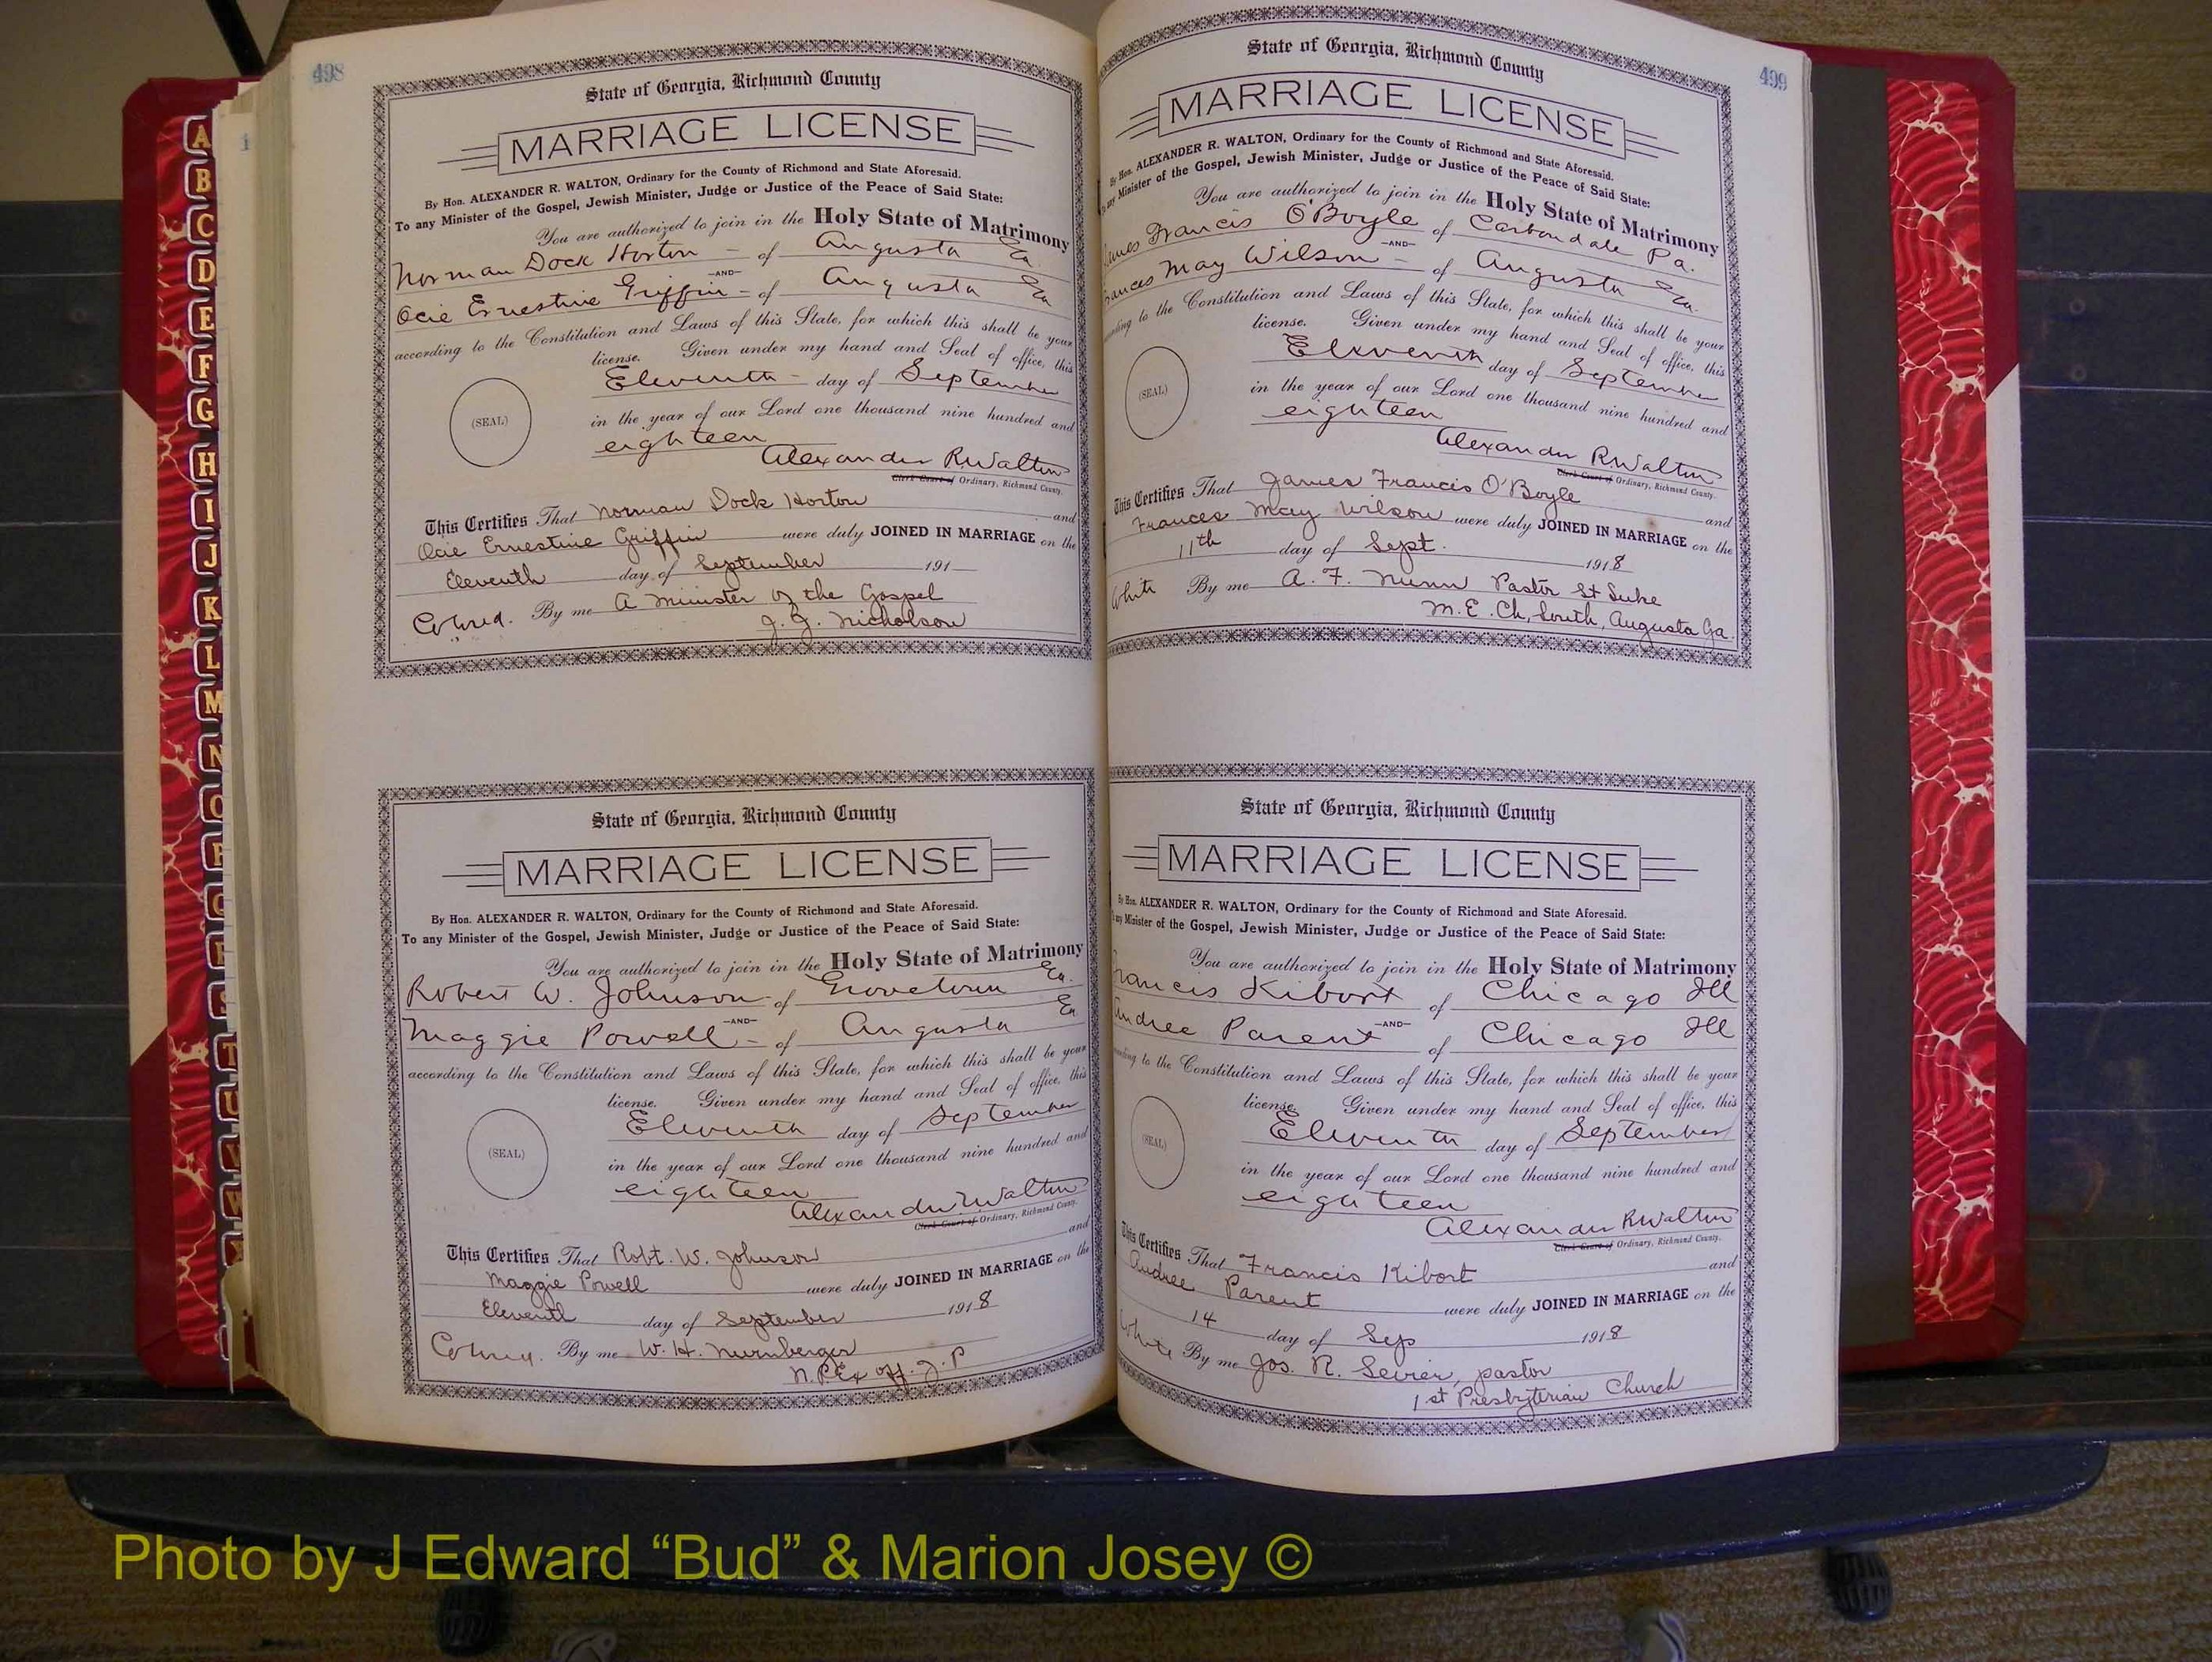 498
State of Georgia, Richmond County
MARRIAGE LICENSE
By Hon. ALEXANDER R. WALTON, Ordinary for the County of Richmond and State Aforesaid.
To any Minister of the Gospel, Jewish Minister, Judge or Justice of the Peace of Said State:
You are authorized to join in the Holy State of Matrimony
Norman Dock Horton - of Augusta Ga.
—AND—
Ocie Ernestine Griffin - of Augusta Ga
according to the Constitution and Laws of this State, for which this shall be your
license. Given under my hand and Seal of office, this
Eleventh - day of September
(SEAL)
in the year of our Lord one thousand nine hundred and
eighteen
Alexander R Walton
Clerk Court of Ordinary, Richmond County.
This Certifies That Norman Dock Horton and
Ocie Ernestine Griffin were duly JOINED IN MARRIAGE on the
Eleventh day of September 191
Colored. By me A Minister of the Gospel
J. G. Nicholson
State of Georgia, Richmond County
MARRIAGE LICENSE
By Hon. ALEXANDER R. WALTON, Ordinary for the County of Richmond and State Aforesaid.
To any Minister of the Gospel, Jewish Minister, Judge or Justice of the Peace of Said State:
You are authorized to join in the Holy State of Matrimony
Robert W. Johnson - of Grovetown Ga.
—AND—
Maggie Powell - of Augusta Ga
according to the Constitution and Laws of this State, for which this shall be your
license. Given under my hand and Seal of office, this
Eleventh day of September
(SEAL)
in the year of our Lord one thousand nine hundred and
eighteen
Alexander R Walton
Clerk Court of Ordinary, Richmond County.
This Certifies That Robt. W. Johnson and
Maggie Powell were duly JOINED IN MARRIAGE on the
Eleventh day of September 1918
Colored. By me W. H. Nurnberger
N.P. Ex off. J.P
499
State of Georgia, Richmond County
MARRIAGE LICENSE
By Hon. ALEXANDER R. WALTON, Ordinary for the County of Richmond and State Aforesaid.
any Minister of the Gospel, Jewish Minister, Judge or Justice of the Peace of Said State:
You are authorized to join in the Holy State of Matrimony
James Francis O'Boyle of Carbondale Pa.
—AND—
Frances May Wilson - of Augusta Ga.
to the Constitution and Laws of this State, for which this shall be your
license. Given under my hand and Seal of office, this
Eleventh day of September
(SEAL)
in the year of our Lord one thousand nine hundred and
eighteen
Alexander R. Walton
Clerk Court of Ordinary, Richmond County.
This Certifies That James Francis O'Boyle and
Frances May Wilson were duly JOINED IN MARRIAGE on the
11th day of Sept. 1918
White By me A. F. Nunn Pastor St Luke
M. E. Ch, South, Augusta Ga.
State of Georgia, Richmond County
MARRIAGE LICENSE
By Hon. ALEXANDER R. WALTON, Ordinary for the County of Richmond and State Aforesaid.
any Minister of the Gospel, Jewish Minister, Judge or Justice of the Peace of Said State:
You are authorized to join in the Holy State of Matrimony
Francis Kibort of Chicago Ill
—AND—
Andree Parent of Chicago Ill
to the Constitution and Laws of this State, for which this shall be your
license. Given under my hand and Seal of office, this
Eleventh day of September
(SEAL)
in the year of our Lord one thousand nine hundred and
eighteen
Alexander R Walton
Clerk Court of Ordinary, Richmond County.
This Certifies That Francis Kibort and
Andree Parent were duly JOINED IN MARRIAGE on the
14 day of Sep 1918
White By me Jos. R. Sevier, pastor
1st Presbyterian Church
A
B
C
D
E
F
G
H
I
J
K
L
M
N
O
P
Q
R
S
T
U
V
W
Photo by J Edward “Bud” & Marion Josey ©